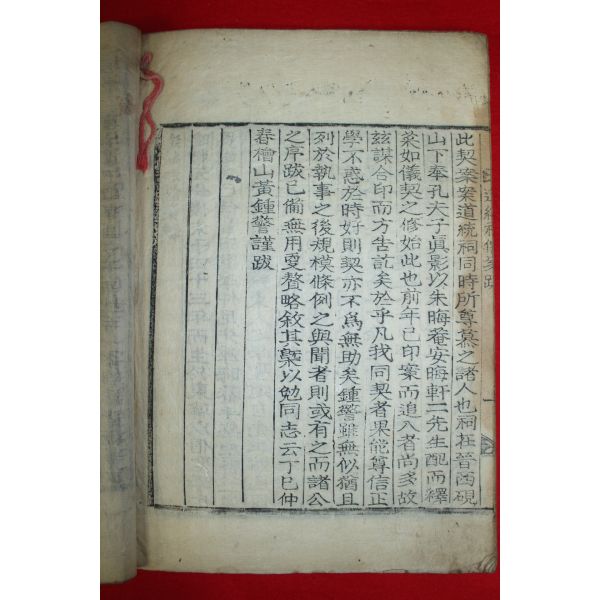 道統祠修契跋
此契案案道統祠同時所尊慕之諸人也祠在晉西硯
山下奉孔夫子眞影以朱晦菴安晦軒二先生配而繹
菜如儀契之修始此也前年已印案而追入者尙多故
玆謀合印而方告訖矣於乎凡我同契者果能尊信正
學不惑於時好則契亦不爲無助矣鍾警雖無似猶且
列於執事之後規模條例之與聞者則或有之而諸公
之序跋已備無用更贅略敘其槩以勉同志云丁巳仲
春檜山黃鍾警謹跋